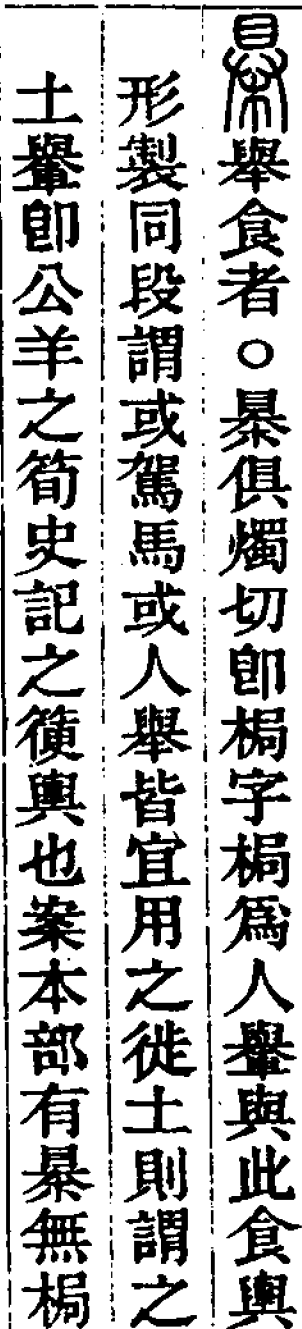 暴舉食者○暴俱燭切卽梮字梮爲人轝與此食輿
形製同段謂或駕馬或人舉皆宜用之徙土則謂之
土轝卽公羊之筍史記之箯輿也案本部有暴無梮